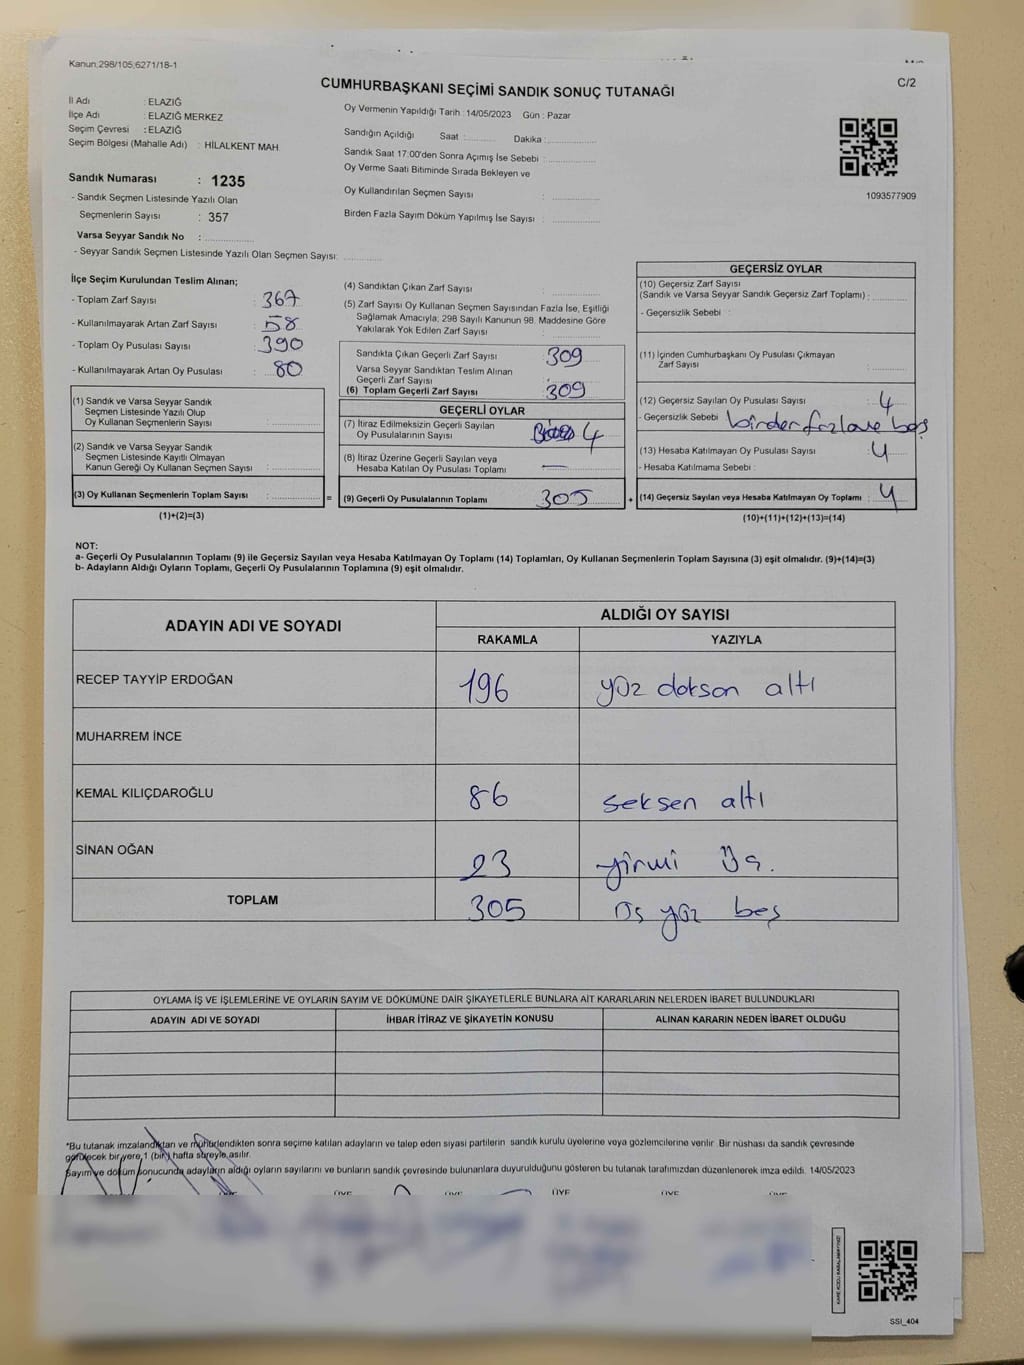 Kanun:298/105;6271/18-1
C/2
CUMHURBAŞKANI SEÇİMİ SANDIK SONUÇ TUTANAĞI
İl Adı : ELAZIĞ
İlçe Adı : ELAZIĞ MERKEZ
Seçim Çevresi : ELAZIĞ
Seçim Bölgesi (Mahalle Adı) : HİLALKENT MAH
Sandık Numarası : 1235
- Sandık Seçmen Listesinde Yazılı Olan
Seçmenlerin Sayısı : 357
Varsa Seyyar Sandık No :
- Seyyar Sandık Seçmen Listesinde Yazılı Olan Seçmen Sayısı:
Oy Vermenin Yapıldığı Tarih : 14/05/2023 Gün : Pazar
Sandığın Açıldığı Saat : Dakika :
Sandık Saat 17.00'den Sonra Açımış İse Sebebi :
Oy Verme Saati Bitiminde Sırada Bekleyen ve
Oy Kullandırılan Seçmen Sayısı :
Birden Fazla Sayım Döküm Yapılmış İse Sayısı :
1093577909
İlçe Seçim Kurulundan Teslim Alınan;
- Toplam Zarf Sayısı : 367
- Kullanılmayarak Artan Zarf Sayısı : 58
- Toplam Oy Pusulası Sayısı : 390
- Kullanılmayarak Artan Oy Pusulası : 80
(1) Sandık ve Varsa Seyyar Sandık
Seçmen Listesinde Yazılı Olup
Oy Kullanan Seçmenlerin Sayısı :
(2) Sandık ve Varsa Seyyar Sandık
Seçmen Listesinde Kayıtlı Olmayan
Kanun Gereği Oy Kullanan Seçmen Sayısı :
(3) Oy Kullanan Seçmenlerin Toplam Sayısı : =
(1)+(2)=(3)
(4) Sandıktan Çıkan Zarf Sayısı :
(5) Zarf Sayısı Oy Kullanan Seçmen Sayısından Fazla İse, Eşitliği
Sağlamak Amacıyla; 298 Sayılı Kanunun 98. Maddesine Göre
Yakılarak Yok Edilen Zarf Sayısı :
Sandıkta Çıkan Geçerli Zarf Sayısı : 309
Varsa Seyyar Sandıktan Teslim Alınan
Geçerli Zarf Sayısı :
(6) Toplam Geçerli Zarf Sayısı : 309
GEÇERLİ OYLAR
(7) İtiraz Edilmeksizin Geçerli Sayılan
Oy Pusulalarının Sayısı : 4
(8) İtiraz Üzerine Geçerli Sayılan veya
Hesaba Katılan Oy Pusulası Toplamı : —
(9) Geçerli Oy Pusulalarının Toplamı : 305 +
GEÇERSİZ OYLAR
(10) Geçersiz Zarf Sayısı
(Sandık ve Varsa Seyyar Sandık Geçersiz Zarf Toplamı) :
- Geçersizlik Sebebi :
(11) İçinden Cumhurbaşkanı Oy Pusulası Çıkmayan
Zarf Sayısı :
(12) Geçersiz Sayılan Oy Pusulası Sayısı : 4
- Geçersizlik Sebebi : birden fazlave boş
(13) Hesaba Katılmayan Oy Pusulası Sayısı : 4
- Hesaba Katılmama Sebebi :
(14) Geçersiz Sayılan veya Hesaba Katılmayan Oy Toplamı : 4
(10)+(11)+(12)+(13)=(14)
NOT:
a- Geçerli Oy Pusulalarının Toplamı (9) ile Geçersiz Sayılan veya Hesaba Katılmayan Oy Toplamı (14) Toplamları, Oy Kullanan Seçmenlerin Toplam Sayısına (3) eşit olmalıdır. (9)+(14)=(3)
b- Adayların Aldığı Oyların Toplamı, Geçerli Oy Pusulalarının Toplamına (9) eşit olmalıdır.
ADAYIN ADI VE SOYADI
ALDIĞI OY SAYISI
RAKAMLA YAZIYLA
RECEP TAYYİP ERDOĞAN 196 yüz doksan altı
MUHARREM İNCE
KEMAL KILIÇDAROĞLU 86 seksen altı
SİNAN OĞAN 23 yirmi üç.
TOPLAM 305 üç yüz beş
OYLAMA İŞ VE İŞLEMLERİNE VE OYLARIN SAYIM VE DÖKÜMÜNE DAİR ŞİKAYETLERLE BUNLARA AİT KARARLARIN NELERDEN İBARET BULUNDUKLARI
ADAYIN ADI VE SOYADI İHBAR İTİRAZ VE ŞİKAYETİN KONUSU ALINAN KARARIN NEDEN İBARET OLDUĞU
*Bu tutanak imzalandıktan ve mühürlendikten sonra seçime katılan adayların ve talep eden siyasi partilerin sandık kurulu üyelerine veya gözlemcilerine verilir. Bir nüshası da sandık çevresinde
görülecek bir yere 1 (bir) hafta süreyle asılır.
Sayım ve döküm sonucunda adayların aldığı oyların sayılarını ve bunların sandık çevresinde bulunanlara duyurulduğunu gösteren bu tutanak tarafımızdan düzenlenerek imza edildi. 14/05/2023
ÜYE ÜYE ÜYE ÜYE ÜYE
SSI_404